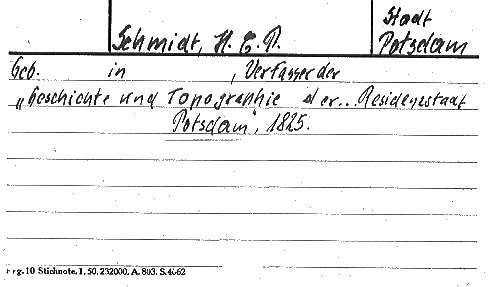 Schmidt, H. C. P.
Stadt
Potsdam
Geb. in , Verfasser der
„Geschichte und Topographie der.. Residenzstadt
Potsdam", 1825.
rg. 10 Stichnote. 1. 50. 232000. A. 803. S. 4062